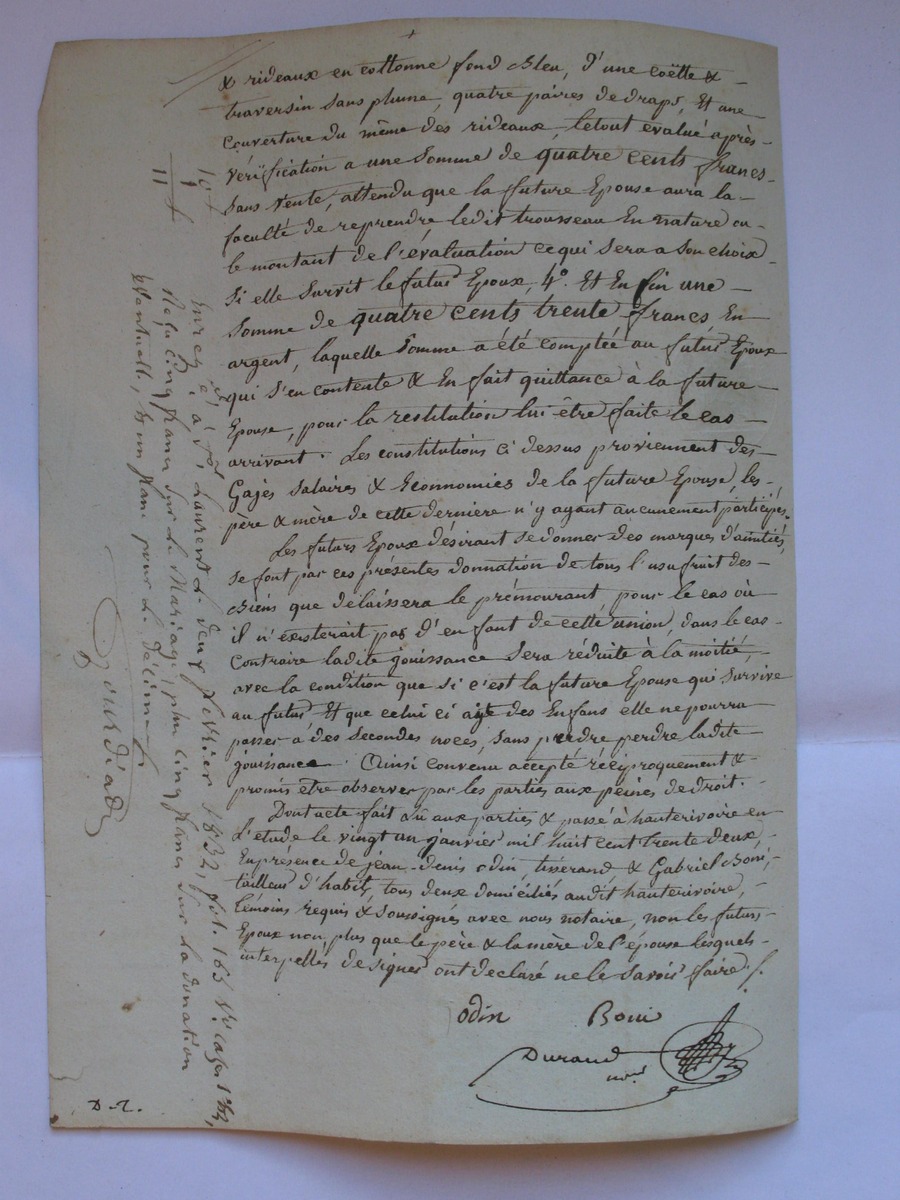 & rideaux en cottonne fond Bleu, d'une coëtte &
traversin sans plume, quatre paires de draps, Et une
couverture du même des rideaux letout évalué après
vérification a une Somme de quatre cents francs
Sans vente, attendu que la future Epouse aura la
faculté de reprendre ledit trousseau En nature ou
le montant de l'évaluation cequi sera a son choix
Si elle Survit le futur Epoux, 4° Et Enfin une
Somme de quatre cents trente francs En
argent, laquelle Somme a été comptée au futur Epoux
qui s'en contente & En fait quittance à la future
Epouse, pour la restitution lui être faite le cas
arrivant. Les constitutions ci dessus proviennent des
Gages Salaires & Economies de la future Epouse, les
père & mère de cette dernière n'y ayant aucunement participés.
Les futurs Epoux désirant se donner des marques d'amitiés,
se font par ces présentes donnation de tous l'usufruit des
Biens que délaissera le prémourant pour le cas où
il n'éxisterait pas d'enfant de cette union, dans le cas
Contraire ladite jouissance Sera réduite à la moitié,
avec la condition que si c'est la future Epouse qui Survive
au futur, Et que celui ci aye des Enfans elle ne pourra
passer a des secondes noces, sans perdre perdre ladite
jouissance. Ainsi convenu accepté réciproquement &
promis être observer par les parties aux peines de droit.
Dont acte fait lu aux parties & passé à hauterivoire en
l'étude le vingt un janvier mil huit cent trente deux,
En présence de jean-denis odin, tisserand & Gabriel Boni,
tailleur d'habits, tous deux domiciliés audit hauterivoire,
témoins requis & Soussignés avec nous notaire, non les futurs
Epoux non plus que le père & la mère de l'épouse lesquels
interpellés de signer ont declaré ne le Savoir faire ./.
odin Boni
Durand
nore
10
1
11
Enregé à St Laurent le deux février 1832, fol. 165
Reçu cinq francs pour le Mariage, plus cinq francs pour la donation
éventuelle, & un franc pour le décime
D-T.